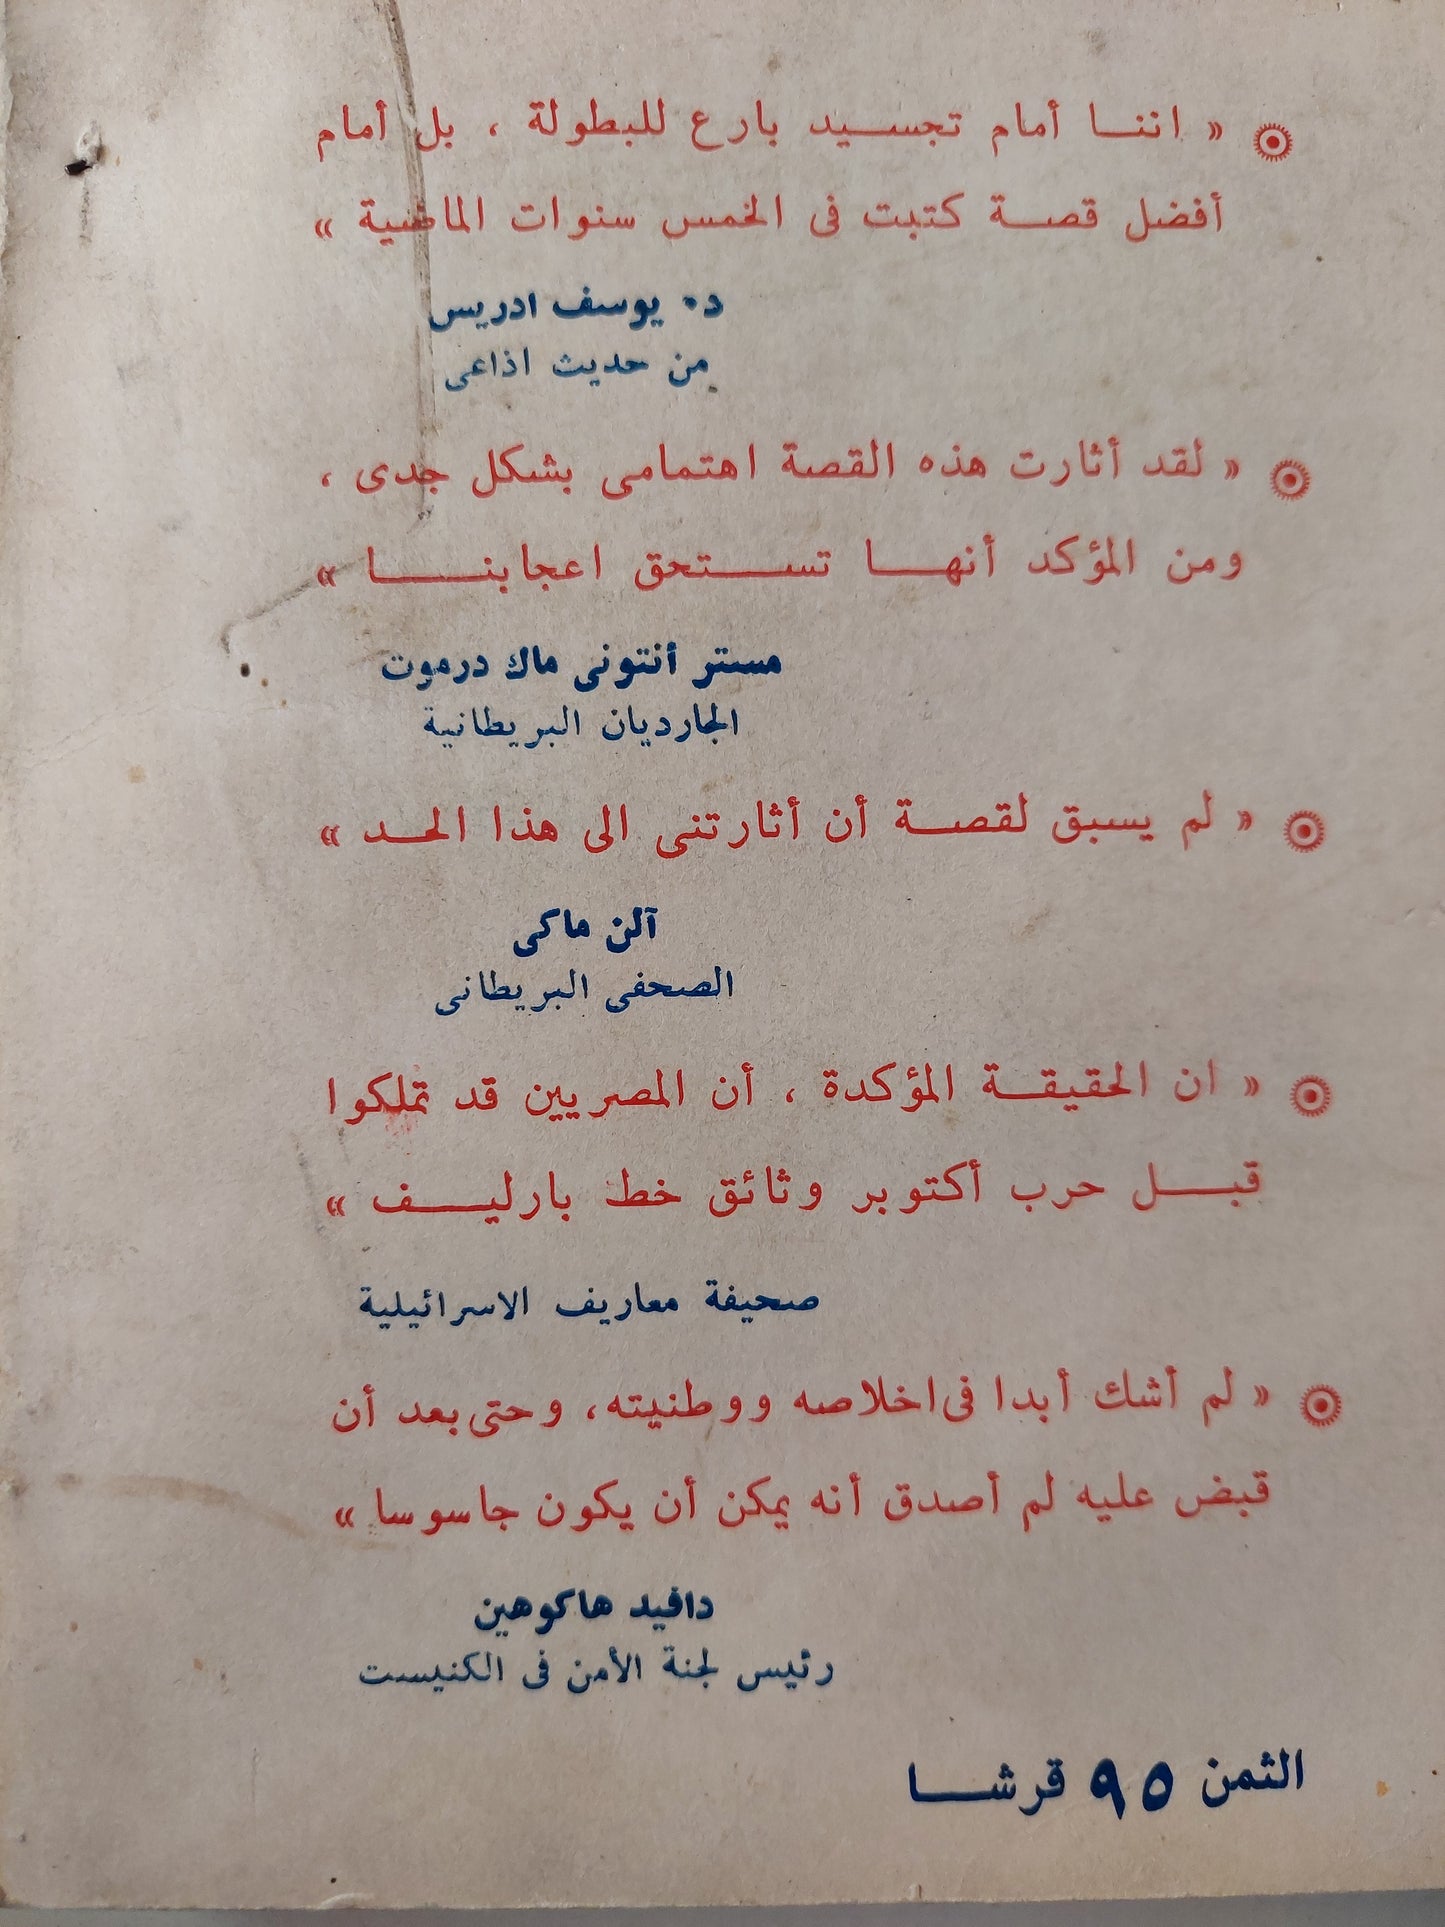 « اننا أمام تجسيد بارع للبطولة ، بل أمام
أفضل قصة كتبت فى الخمس سنوات الماضية »
د. يوسف ادريس
من حديث اذاعى
« لقد أثارت هذه القصة اهتمامى بشكل جدى ،
ومن المؤكد أنها تستحق اعجابنا »
مستر أنتونى ماك درموت
الجارديان البريطانية
« لم يسبق لقصة أن أثارتنى الى هذا الحد »
آلن ماكى
الصحفى البريطانى
« ان الحقيقة المؤكدة ، أن المصريين قد تملكوا
قبل حرب أكتوبر وثائق خط بارليف »
صحيفة معاريف الاسرائيلية
« لم أشك أبدا فى اخلاصه ووطنيته، وحتى بعد أن
قبض عليه لم أصدق أنه يمكن أن يكون جاسوسا »
دافيد هاكوهين
رئيس لجنة الأمن فى الكنيست
الثمن ٩٥ قرشا